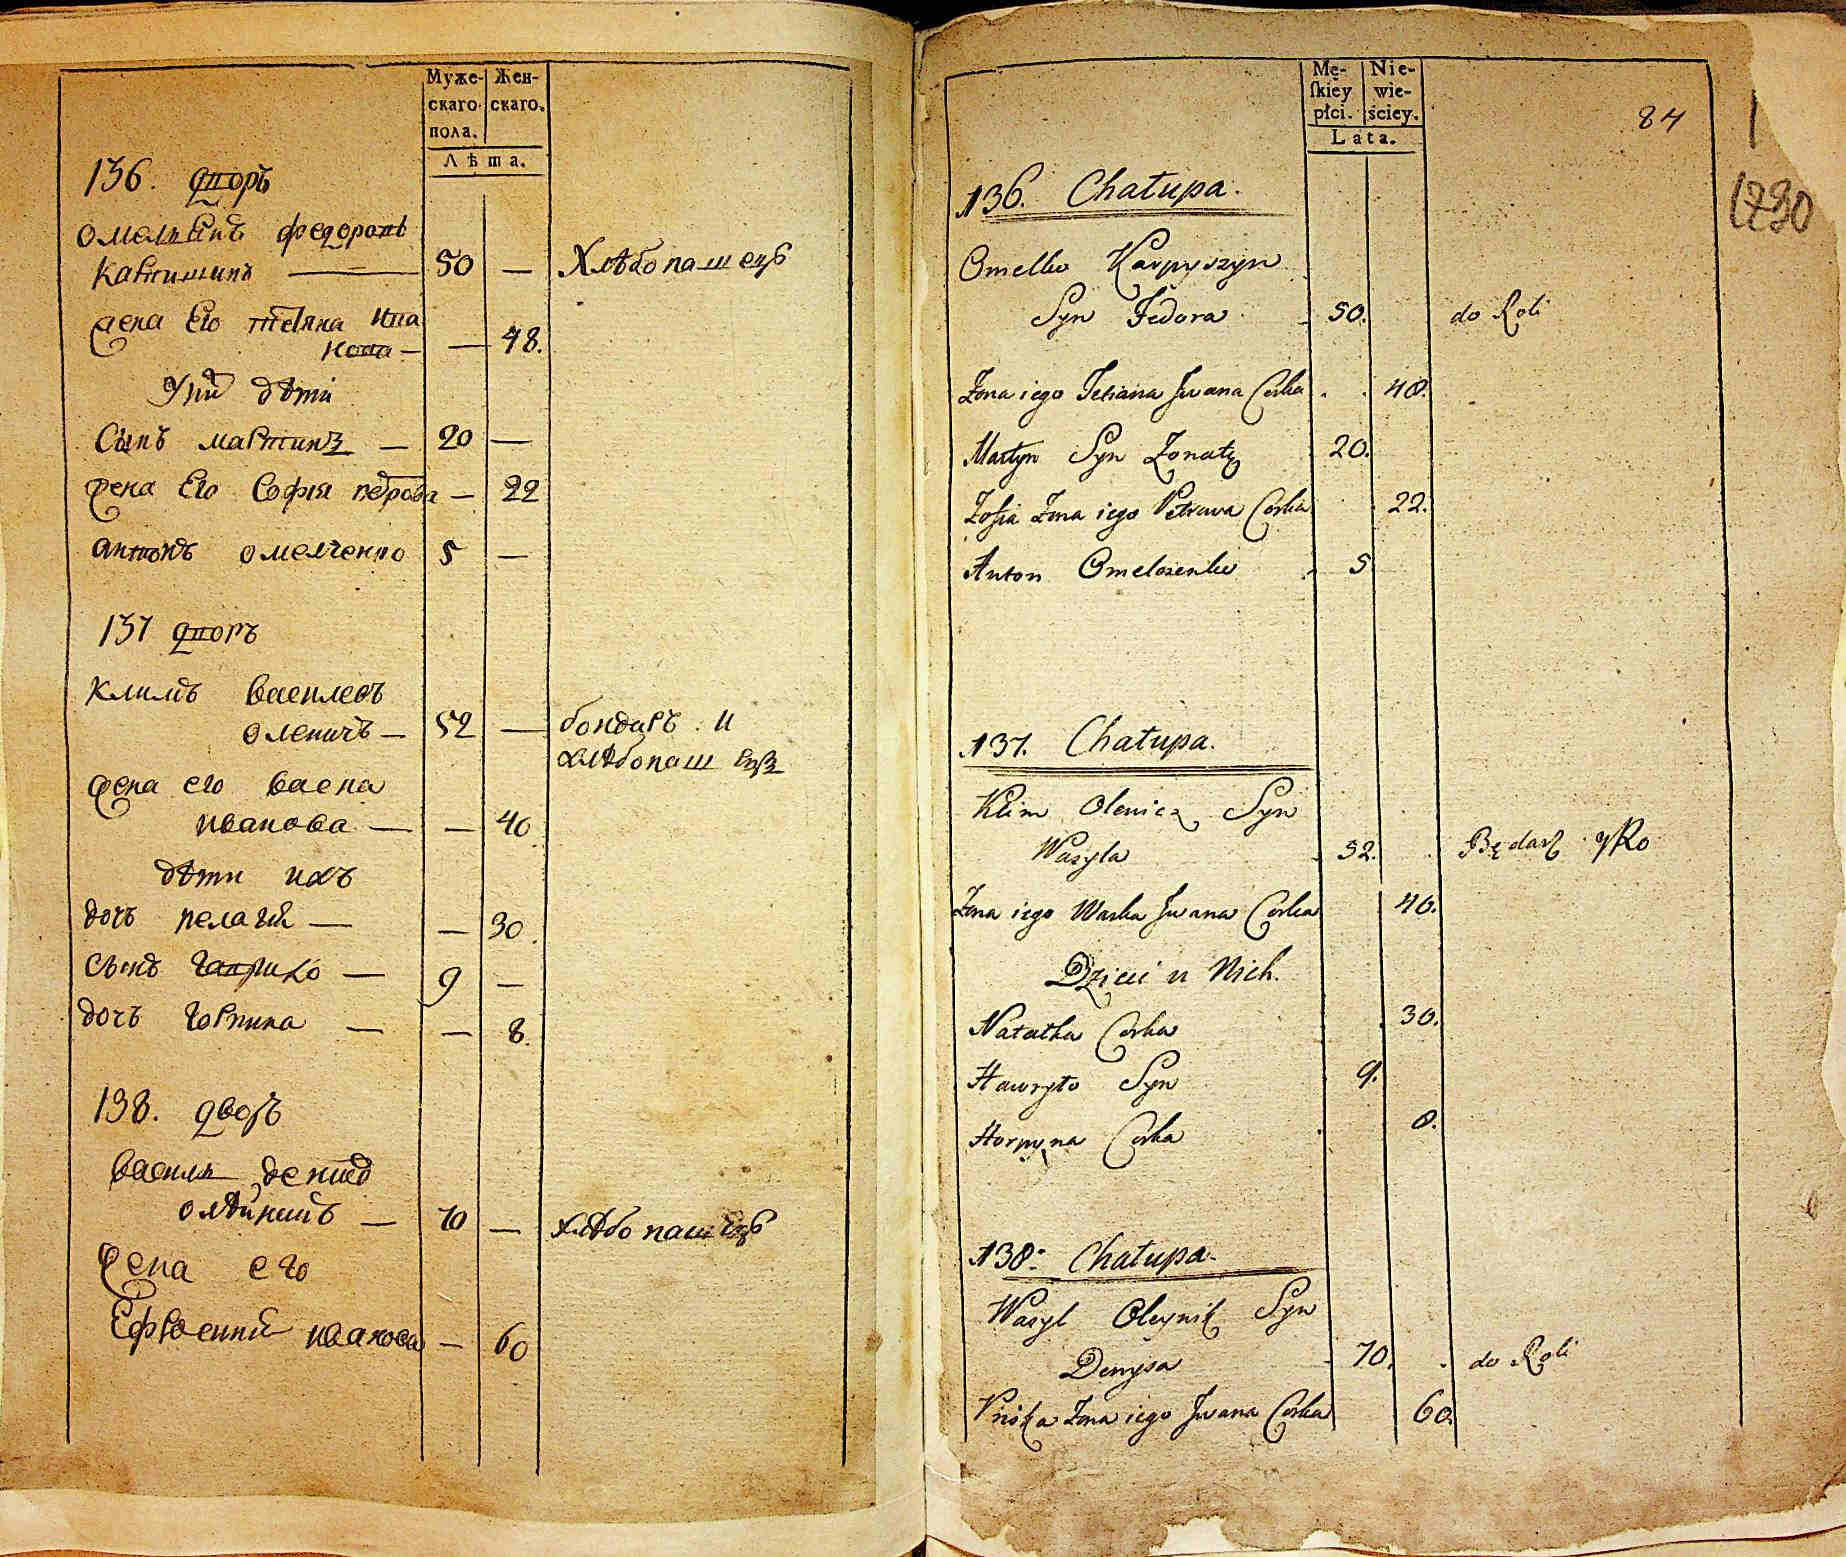 Муже-
скаго
пола.
Жен-
скаго.
Лѣта.
136. дворъ
омелянъ федоровъ
50 — Хлѣбопашецъ
жена Его тетяна Ива
нова — — 48.
У них дѣти
Сынъ мартинъ — 20 —
жена Его Софія петрова — 22
антонъ омелченко 5 —
137 дворъ
климъ василевъ
оленичъ — 52 — бондаръ и
хлѣбопашецъ
жена его васка
иванова — — 40
дѣти ихъ
дочъ пелагия — — 30.
сынъ гаврило — 9 —
дочъ горпина — — 8.
138. дворъ
василь денисов
олѣйникъ — 70 — хлѣбопашецъ
жена его
Ефросиния иванова — 60
Mę-
ſkiey
płci.
Nie-
wie-
ściey.
Lata.
84
1790
136. Chałupa.
Omelko Karpyszyn
Syn Fedora 50. do Roli
Zona iego Tetiana Iwana Corka 48.
Martyn Syn Zonaty 20.
Zofia Zona iego Petrowa Corka 22.
Anton Omelczenko 5
137. Chałupa.
Klim Olenicz Syn
Wasyla 52. Będarz y Ro
Zona iego Waska Iwana Corka 40.
Dzieci u Nich.
Natałka Corka 30.
Hawryło Syn 9.
Horpyna Corka 8.
138. Chałupa.
Wasyl Oleynik Syn
Denysa 70. do Roli
Pryśka Zona iego Iwana Corka 60.